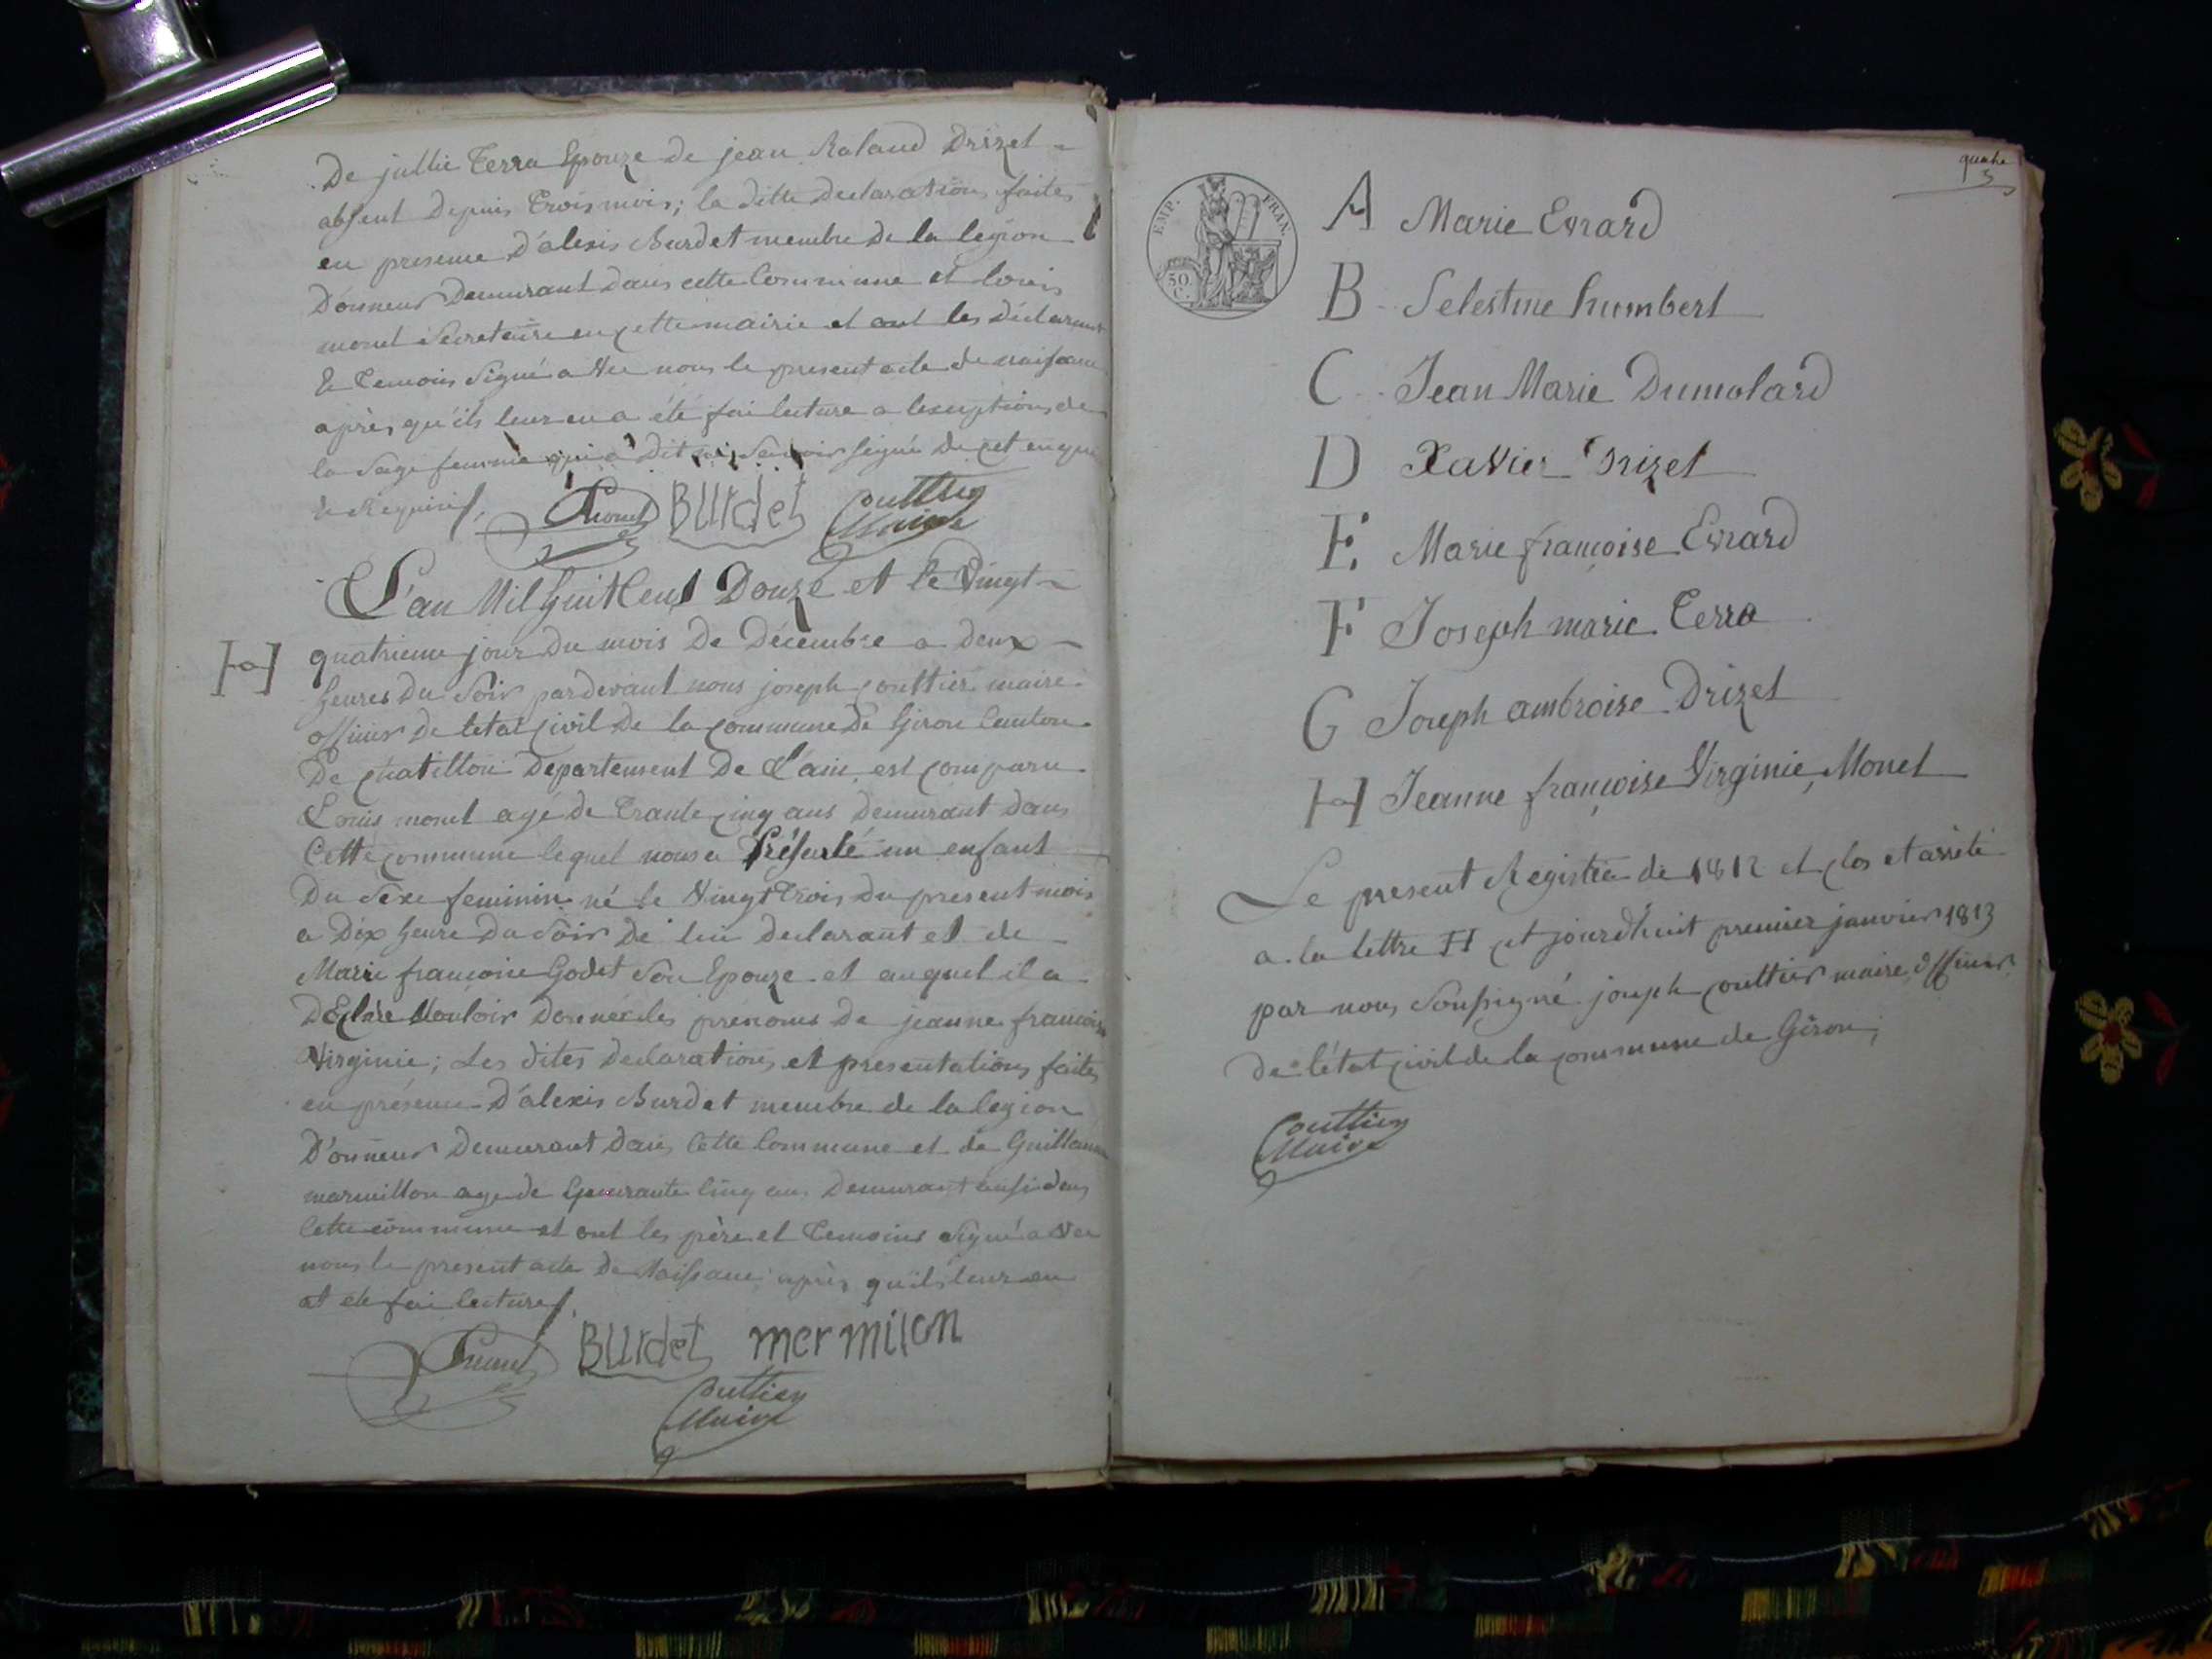 De jullie Terra Epouze de jean Roland Drizet
absent Depuis Trois mois; la ditte Declaration faites
en presence D'alexis Burdet membre De la legion
D'onneur Demeurant Dans cette Commune et louis
monet Secretaire en cette mairie et ont les Déclarant
& Temoins Signé avec nous le present acte de naissance
après qu'ils leur en a été fai lecture a lexception de
la Sage femme qui a Dit ne Savoir signé De cet enque
& Requis
Monet Burdet Couttier
Maire
L'an Mil huit Cent Douze et le Vingt
H quatrieme jour Du mois De Décembre a deux
heures Du Soir pardevant nous joseph Couttier maire
officier de letat civil De la commune De Giron Canton
De chatillon Departement De L'ain est comparu
Louis monet agé de Trante cinq ans Demurant dans
Cette commune lequel nous a Présenté un enfant
Du Sexe feminin né le Vingt Trois du present mois
a Dix heure Du Soir De lui Declarant et de
Marie francoise Godet Son Epouze et auquel il a
Déclaré Vouloir Donné les prénoms De jeanne francoise
Virginie; Les dites declarations et presentations faites
en présence D'alexis Burdet membre de la legion
D'onneur Demeurant Dans Cette Commune et de Guillaume
marmillon age de quarante Cinq ans Demurant ausi dans
Cette commune et ont les père et Temoins Signé avec
nous le present acte De Naissance après qu'ils leur en
at été fai lecture
Monet Burdet mermilon
Couttier
Maire
quatre
EMP. FRAN.
50 C.
A Marie Evrard
B Selestine humbert
C Jean Marie Dumolard
D Xavier Drizet
E Marie françoise Evrard
F Joseph marie Terra
G Joseph ambroise Drizet
H Jeanne françoise Virginie Monet
Le present Registre de 1812 et clos et arrêté
a la lettre H cet jourd'huit premier janvier 1813
par nous Soussigné joseph couttier maire officier
de l'état civil de la commune de Giron;
Couttier
Maire